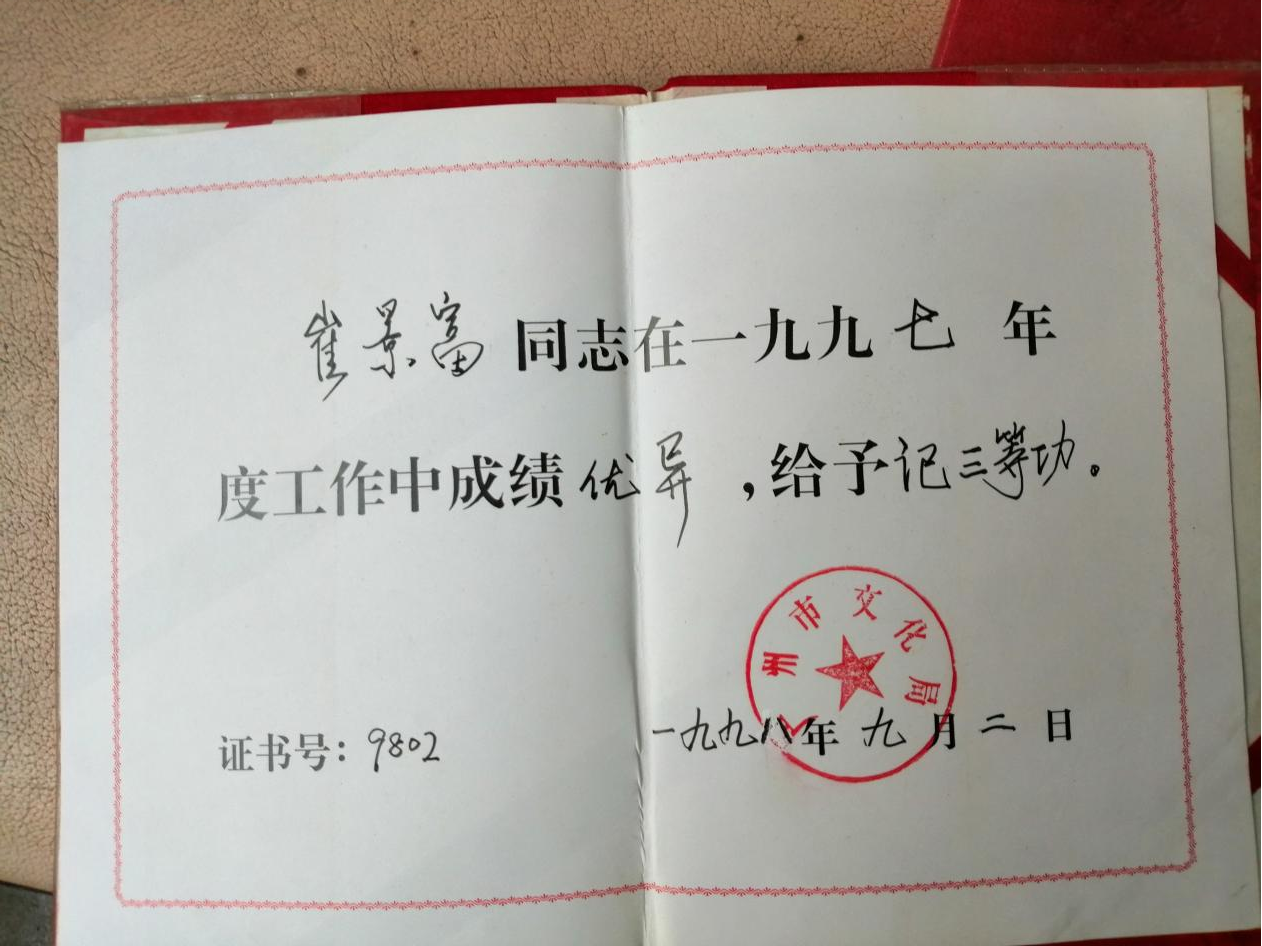 崔景富同志在一九九七年
度工作中成绩优异，给予记三等功。
州市文化局
证书号：9802
一九九八年九月二日